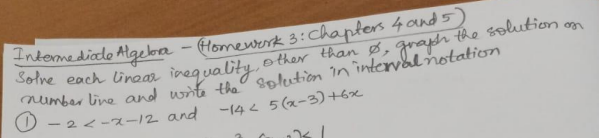 Intermediate Algebra - (Homework 3: Chapters 4 and 5)
Solve each linear inequality, other than ∅, graph the solution on
number line and write the solution in interval notation
① -2 < -x-12 and -14 < 5(x-3)+6x